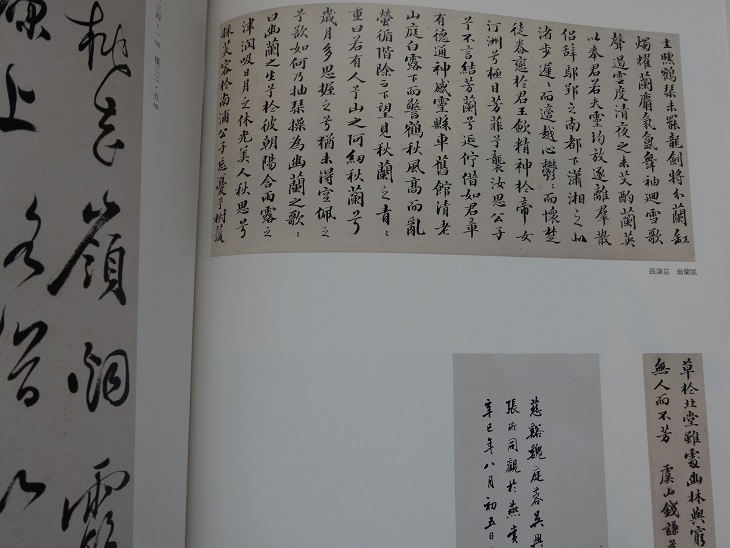 照鶴琹未罷龍劍將分蘭缸
燭耀蘭膏氛氳舞袖迴雪歌
聲遏雲度清夜之未艾酌蘭英
以奉君若夫靈均放逐離羣散
侣辞鄢郢之南都下瀟湘之北
渚步遲〻而適越心鬱〻而懷楚
徒眷戀於君王歛精神於帝女
汀洲兮極目芳菲兮襲汝思公子
兮不言結芳蘭兮延佇借如君章
有德通神感靈縣車舊館清老
山庭白露下而警鶴秋風高而亂
螢循階除而下望見秋蘭之青〻
重曰若有人兮山之阿紉秋蘭兮
歲月多思握之兮猶未得空佩之
兮欲如何乃抽琹操為幽蘭之歌〻
曰幽蘭之生兮於彼朝陽含雨露之
津潤吸日月之休光美人秋思兮
採芙容於南浦公子忘憂兮樹萱
錢謙益 幽蘭賦
草於北堂雖處幽林與窮
無人而不芳 虞山錢謙
慈谿魏庭蓉吳興
張珩同觀於燕京
辛巳年八月初五日